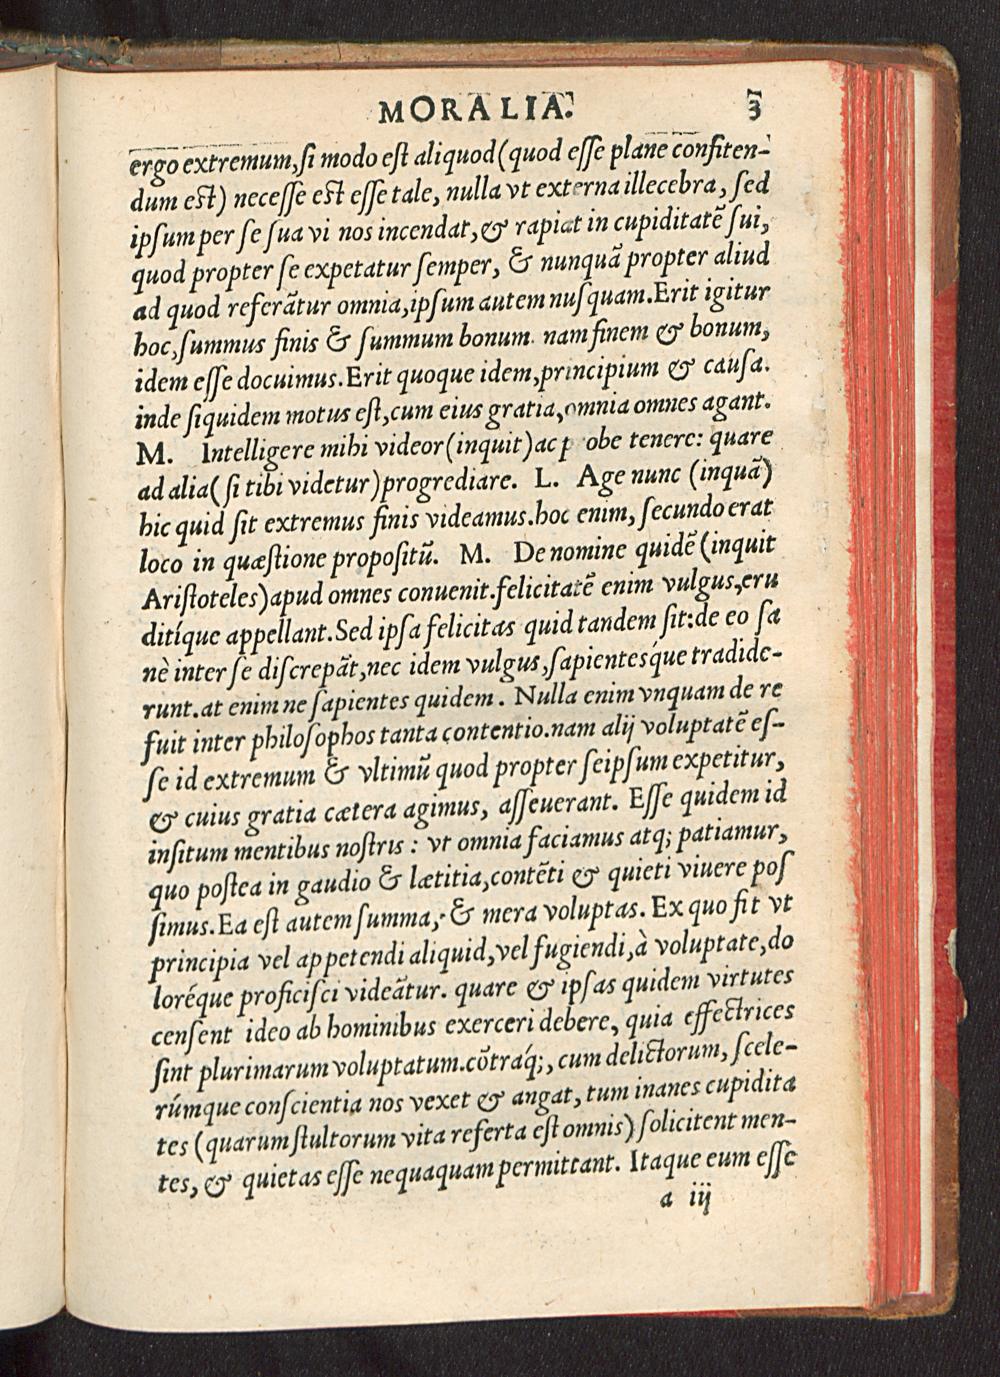 MORALIA. 3
ergo extremum, si modo est aliquod (quod esse plane confiten-
dum est) necesse est esse tale, nulla vt externa illecebra, sed
ipsum per se sua vi nos incendat, & rapiat in cupiditatē sui,
quod propter se expetatur semper, & nunquā propter aliud
ad quod referātur omnia, ipsum autem nusquam. Erit igitur
hoc, summus finis & summum bonum. nam finem & bonum,
idem esse docuimus. Erit quoque idem, principium & causa.
inde siquidem motus est, cum eius gratia, omnia omnes agant.
M. Intelligere mihi videor (inquit) ac p obe tenere: quare
ad alia (si tibi videtur) progrediare. L. Age nunc (inquā)
hic quid sit extremus finis videamus. hoc enim, secundo erat
loco in quæstione propositū. M. De nomine quidē (inquit
Aristoteles) apud omnes conuenit. felicitatē enim vulgus, eru
ditíque appellant. Sed ipsa felicitas quid tandem sit: de eo sa
nè inter se discrepāt, nec idem vulgus, sapientesq́ue tradide-
runt. at enim ne sapientes quidem. Nulla enim vnquam de re
fuit inter philosophos tanta contentio. nam alij voluptatē es-
se id extremum & vltimū quod propter seipsum expetitur,
& cuius gratia cætera agimus, asseuerant. Esse quidem id
insitum mentibus nostris: vt omnia faciamus atq; patiamur,
quo postea in gaudio & lætitia, contēti & quieti viuere pos
simus. Ea est autem summa, & mera voluptas. Ex quo fit vt
principia vel appetendi aliquid, vel fugiendi, à voluptate, do
loréque proficisci videātur. quare & ipsas quidem virtutes
censent ideo ab hominibus exerceri debere, quia effectrices
sint plurimarum voluptatum. cōtráq;, cum delictorum, scele-
rúmque conscientia nos vexet & angat, tum inanes cupidita
tes (quarum stultorum vita referta est omnis) solicitent men-
tes, & quietas esse nequaquam permittant. Itaque eum esse
a iij